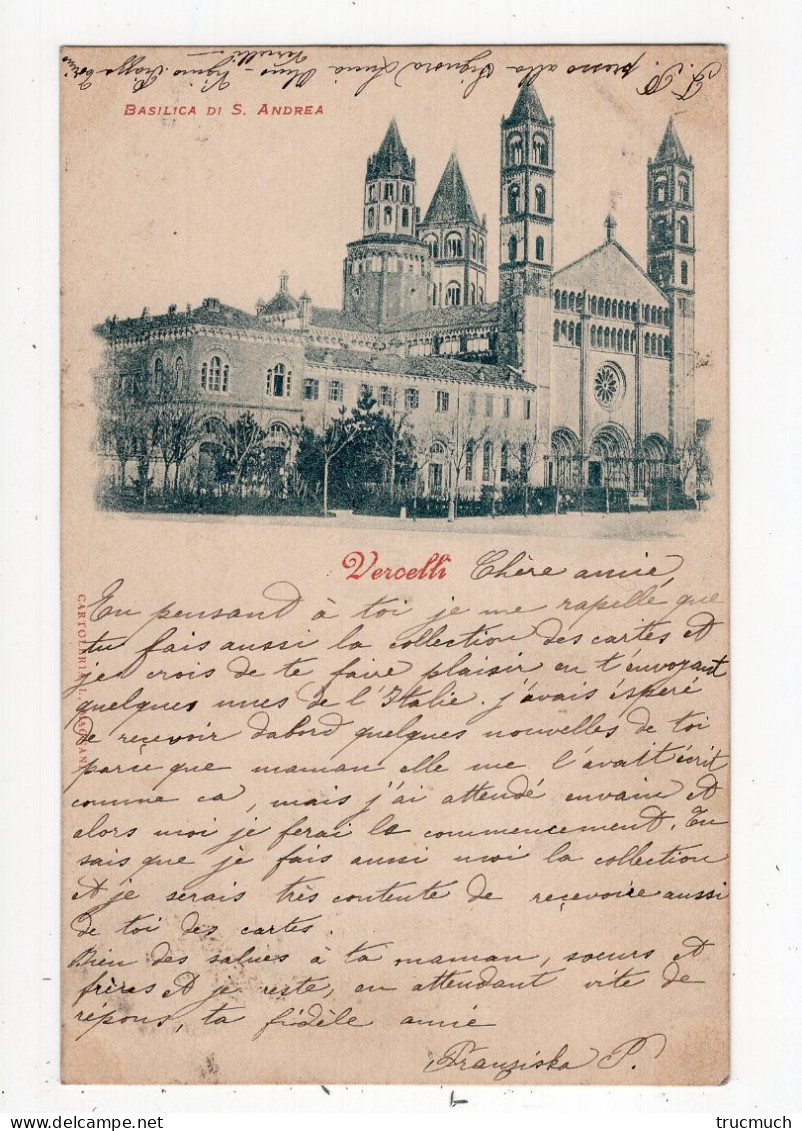 F. P. presso alla Signora Luina
Vercelli
BASILICA DI S. ANDREA
Vercelli Chère amie,
En pensant à toi je me rapelle que
tu fais aussi la collection des cartes et
je crois de te faire plaisir en t'envoyant
quelques unes de l'Italie. j'avais éspéré
de reçevoir dabord quelques nouvelles de toi
parce que maman elle me l'avait écrit
comme ca, mais j'ai attendé envain et
alors moi je ferai le commencement. Tu
sais que je fais aussi moi la collection
et je serais très contente de reçevoire aussi
de toi des cartes.
Bien des salues à ta maman, soeurs et
frères et je reste, en attendant vite de
répons, ta fidèle amie
Franziska P.
CARTOLERIA
trucmuch